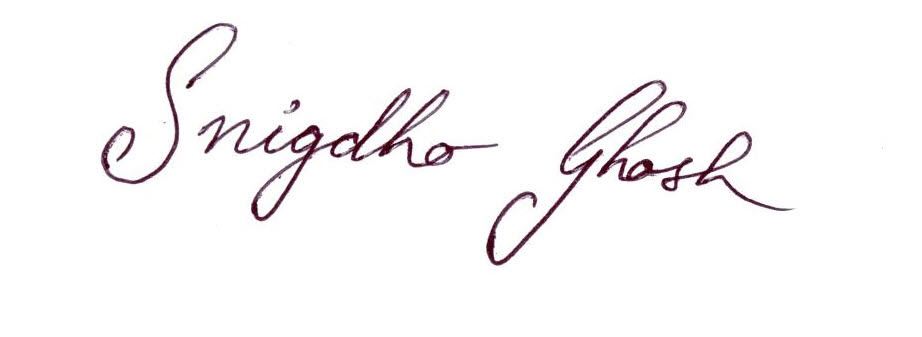 Snigdho Ghosh